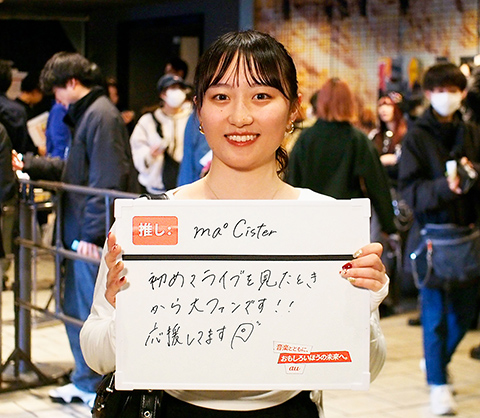 推し: ma°Cister
初めてライブを見たとき
から大ファンです!!
応援してます
音楽とともに、
おもしろいほうの未来へ。
au